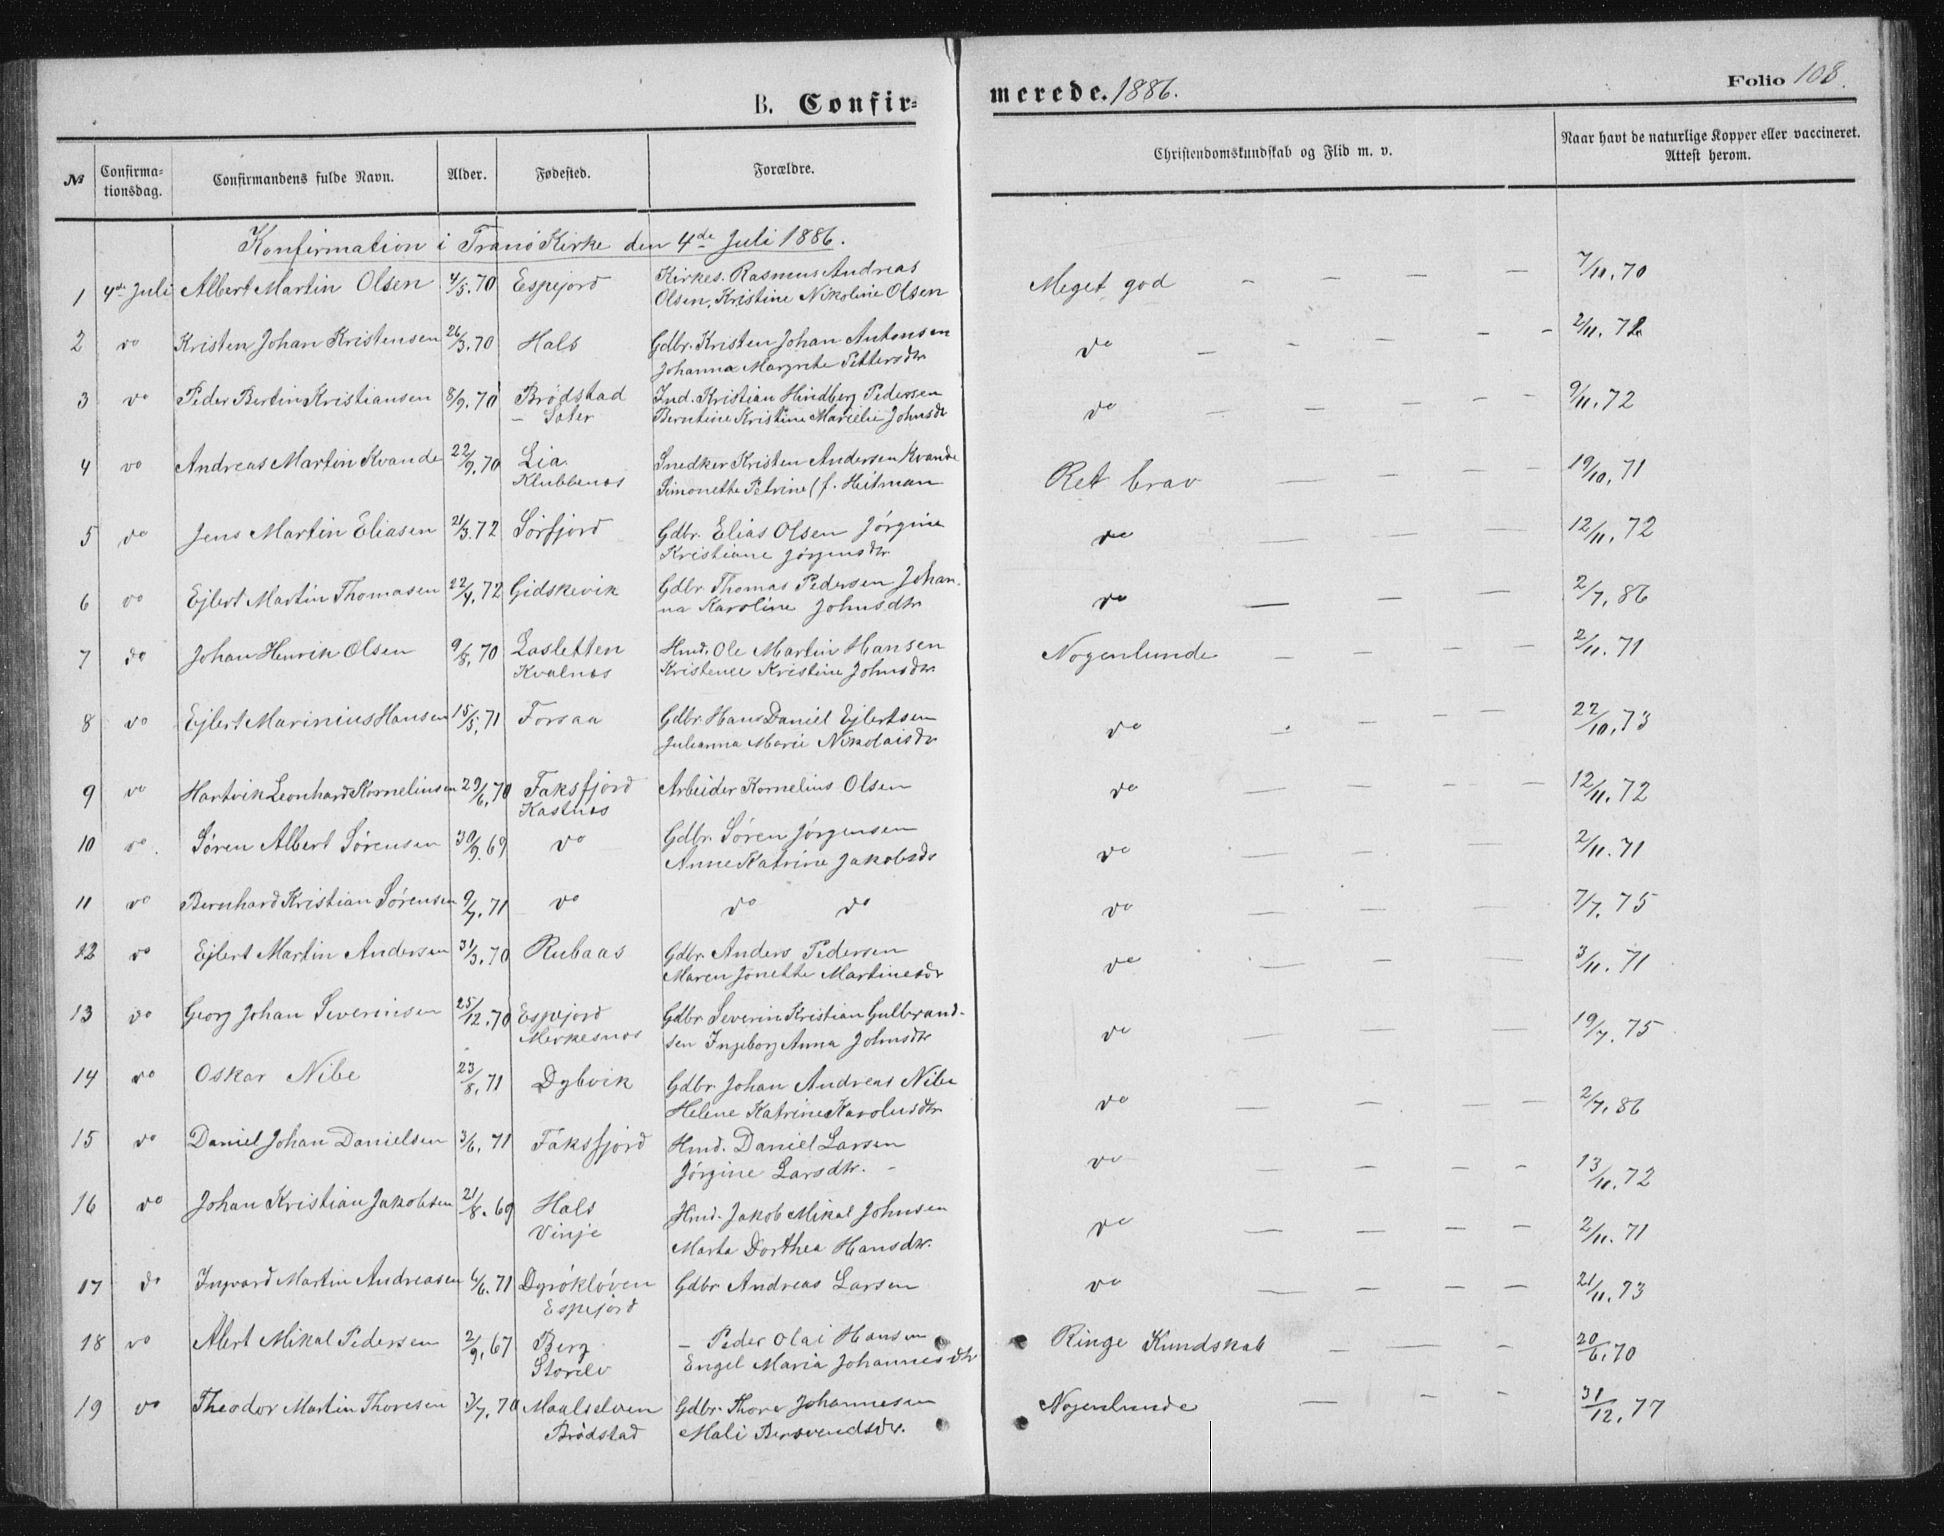 B. Confir-
merede. 1886.
Folio 108.
№
Confirma-
tionsdag.
Confirmandens fulde Navn.
Alder.
Fødested.
Forældre.
Christendomskundskab og Flid m. v.
Naar havt de naturlige Kopper eller vaccineret.
Attest herom.
Konfirmation i Tranö Kirke den 4de Juli 1886.
1 4de Juli Albert Martin Olsen 4/5.70 Espejord Kirkes. Rasmus Andreas Meget god - - - - - 7/10.70
Olsen, Kristine Nikoline Olsen
2 do Kristen Johan Kristensen 26/3.70 Hals Gdbr. Kristen Johan Antonsen do - - - - - 2/11.72
Johanna Margrete Pettersdtr
3 do Peder Bertin Kristiansen 8/9.70 Brödstad Ind. Kristian Hindberg Pedersen do - - - - - 9/11.72
- Sater Berntine Kristine Marielie Johnsdr
4 do Andreas Martin Kvande 22/9.70 Lia Snedker Kristen Andersen Kvande Ret brav - - - - 19/10.71
Klubbenes Simonette Petrine (f. Heitman
5 do Jens Martin Eliasen 21/3.72 Sörfjord Gdbr. Elias Olsen Jörgine do - - - - 12/11.72
Kristiane Jörgensdtr
6 do Ejlert Martin Thomasen 22/4.72 Gidskevik Gdbr. Thomas Pedersen Johan- do - - - - 2/7.86
na Karoline Johnsdtr
7 do Johan Henrik Olsen 9/8.70 Lasletten Hmd. Ole Martin Hansen Nogenlunde - - - - 2/11.71
Kvalnes Kristence Kristine Johnsdtr
8 do Ejlert Marinius Hansen 15/5.71 Forsaa Gdbr. Hans Daniel Ejlertsen do - - - - 22/10.73
Julianna Marie Nikolaisdr
9 do Hartvik Leonhard Kornelinsen 29/6.70 Faksfjord Arbeider Kornelius Olsen do - - - - 12/11.72
Kastnes
10 do Sören Albert Sörensen 30/9.69 do Gdbr. Sören Jörgensen do - - - - 2/11.71
Anne Katrine Jakobsdr
11 do Bernhard Kristian Sörensen 9/7.71 do do do do - - - - 7/7.75
12 do Ejlert Martin Andersen 31/3.70 Rubaas Gdbr. Anders Pedersen do - - - - 3/11.71
Maren Jonette Martinesdr
13 do Georg Johan Severinsen 25/12.70 Espejord Gdbr Severin Kristian Gulbrand- do - - - - 19/7.75
Merkesnes sen Ingeborg Anna Johnsdtr
14 do Oskar Nibe 23/8.71 Dybvik Gdbr. Johan Andreas Nibe do - - - - 2/7.86
Helene Katrine Karolusdtr
15 do Daniel Johan Danielsen 3/6.71 Faksfjord Hmd. Daniel Larsen do - - - - 13/11.72
Jörgine Larsdtr. -
16 do Johan Kristian Jakobsen 21/8.69 Hals Hmd. Jakob Mikal Johnsen do - - - - 2/11.71
Vinje Marta Dorthea Hansdtr.
17 do Ingvard Martin Andreasen 6/6.71 Dyröklöven Gdbr Andreas Larsen do - - - - 21/11.73
Espejord
18 do Albert Mikal Pedersen 2/9.67 Berg - Peder Olai Hansen Ringe Kundskab - - - 20/6.70
Storelv Engel Maria Johannesdtr
19 do Theodor Martin Thoresen 3/7.70 Maalselven Gdbr. Thore Johannesen Nogenlunde - - - 31/12.77
Brödstad Mali Bersvendsdr.